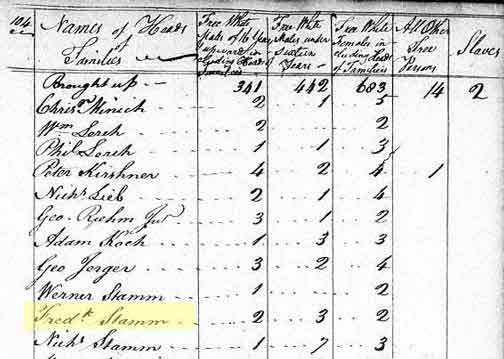 104
Names of Heads of Families
Free White Males of 16 Years upwards including Heads of Families
Free White Males under Sixteen Years
Free White Females including Heads of Families
All Other Free Persons
Slaves
Brought up 341 442 683 14 2
Christn Minich 2 1 5
Wm Lerch 2 .. 2
Phil Lerch 1 1 3
Peter Kirshner 4 2 4 1
Nichs Lieb 2 1 4
Geo Riehm Junr 3 1 2
Adam Koch 1 3 3
Geo Jerger 3 2 4
Werner Stamm 1 .. 2
Fredk Stamm 2 3 2
Nichs Stamm 1 7 3